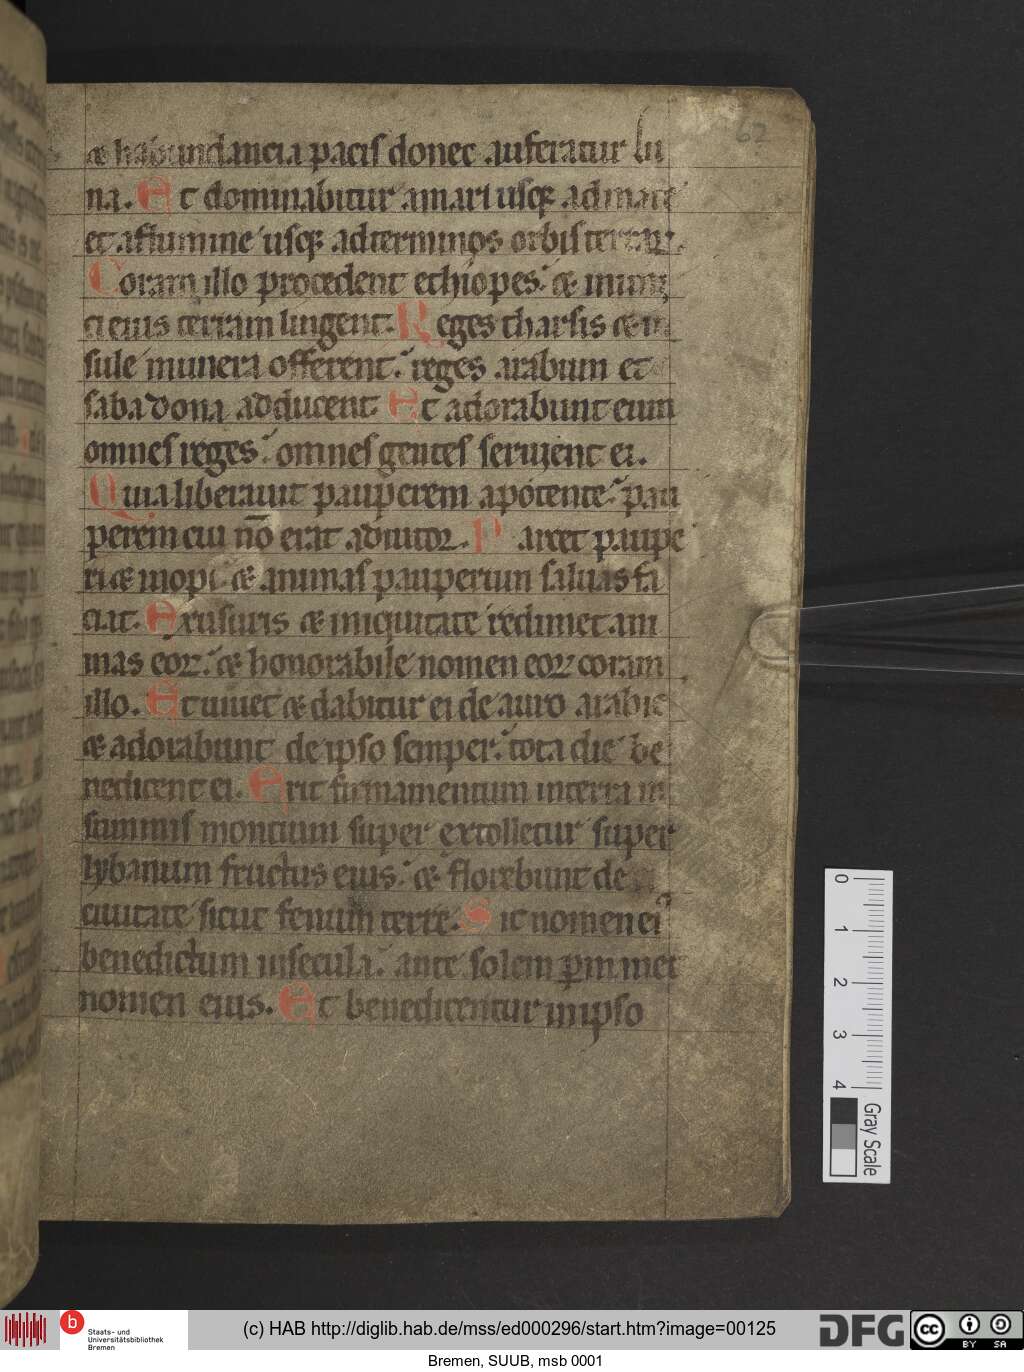 62
& habundantia pacis donec auferatur lu
na. Et dominabitur amari usq; admare
et aflumine usq; adterminos orbis terraꝝ.
Coram illo procedent ethiopes: & inimi
ci eius terram lingent. Reges tharsis & in
sule munera offerent: reges arabum et
saba dona adducent. Et adorabunt eum
omnes reges: omnes gentes seruient ei.
Quia liberauit pauperem apotente: pau
perem cui nō erat adiutor. Parcet paupe
ri & inopi: & animas pauperum saluas fa
ciet. Ex usuris & iniquitate redimet ani
mas eoꝝ: & honorabile nomen eoꝝ coram
illo. Et uiuet & dabitur ei de auro arabie
& adorabunt de ipso semper: tota die be
nedicent ei. Erit firmamentum interra in
summis montium super extolletur super
lybanum fructus eius: & florebunt de
ciuitate sicut fenum terre. Sit nomen ei9
benedictum insecula: ante solem ꝑmanet
nomen eius. Et benedicentur inipso
0
1
2
3
4
Gray Scale
b
Staats- und
Universitätsbibliothek
Bremen
(c) HAB http://diglib.hab.de/mss/ed000296/start.htm?image=00125
DFG
cc
BY SA
Bremen, SUUB, msb 0001